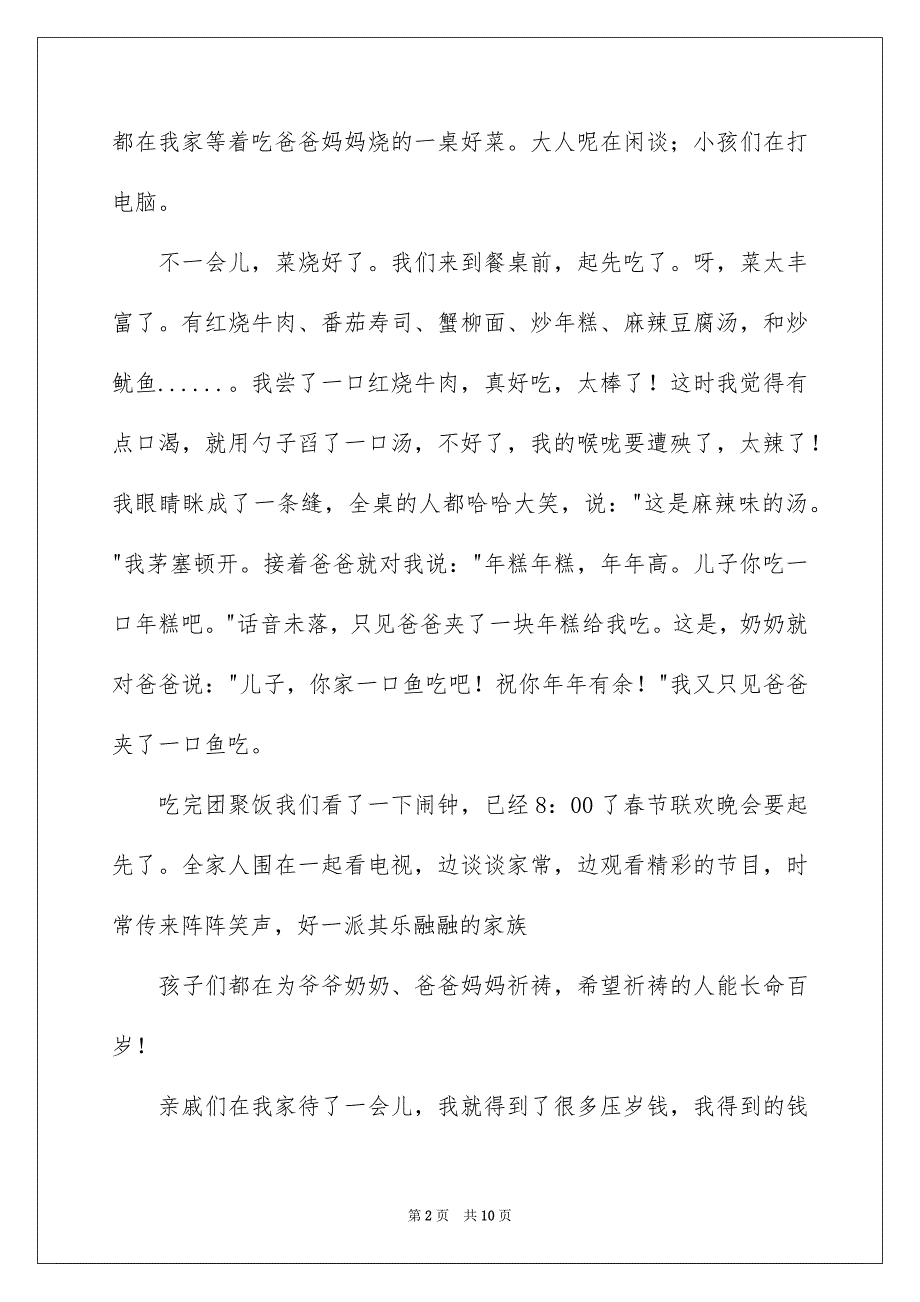 都在我家等着吃爸爸妈妈烧的一桌好菜。大人呢在闲谈；小孩们在打
电脑。
不一会儿，菜烧好了。我们来到餐桌前，起先吃了。呀，菜太丰
富了。有红烧牛肉、番茄寿司、蟹柳面、炒年糕、麻辣豆腐汤，和炒
鱿鱼......。我尝了一口红烧牛肉，真好吃，太棒了！这时我觉得有
点口渴，就用勺子舀了一口汤，不好了，我的喉咙要遭殃了，太辣了！
我眼睛眯成了一条缝，全桌的人都哈哈大笑，说："这是麻辣味的汤。
"我茅塞顿开。接着爸爸就对我说："年糕年糕，年年高。儿子你吃一
口年糕吧。"话音未落，只见爸爸夹了一块年糕给我吃。这是，奶奶就
对爸爸说："儿子，你家一口鱼吃吧！祝你年年有余！"我又只见爸爸
夹了一口鱼吃。
吃完团聚饭我们看了一下闹钟，已经8：00了春节联欢晚会要起
先了。全家人围在一起看电视，边谈谈家常，边观看精彩的节目，时
常传来阵阵笑声，好一派其乐融融的家族
孩子们都在为爷爷奶奶、爸爸妈妈祈祷，希望祈祷的人能长命百
岁！
亲戚们在我家待了一会儿，我就得到了很多压岁钱，我得到的钱
第 2 页 共 10 页